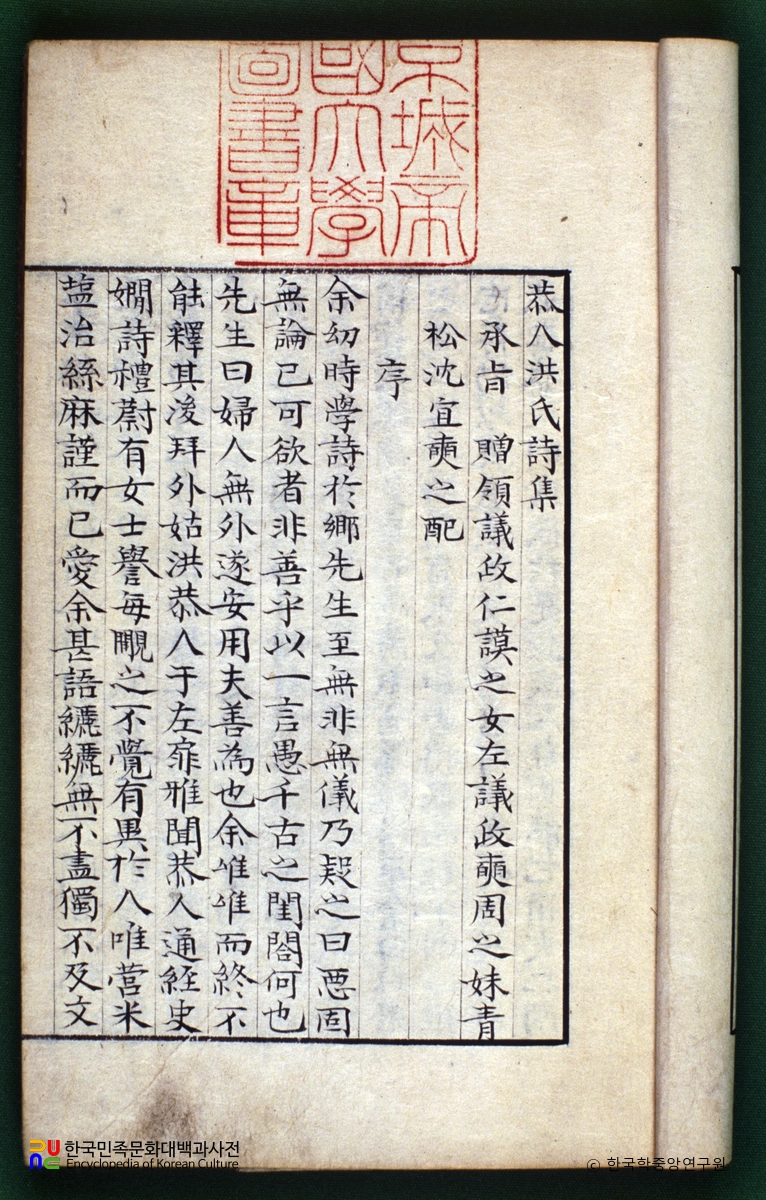 京城帝
國大學
圖書章
恭人洪氏詩集
承旨 贈領議政仁謨之女左議政奭周之妹青
松沈宜奭之配
序
余幼時學詩於鄉先生至無非無儀乃疑之曰惡固
無論已可欲者非善乎以一言愚千古之閨閤何也
先生曰婦人無外遂安用夫善為也余唯唯而終不
能釋其後拜外姑洪恭人于左雅聞恭人通經史
嫺詩禮蔚有女士譽每覵之不覺有異於人唯營米
塩治絲麻謹而已愛余甚語纚纚無不盡獨不及文
한국민족문화대백과사전
Encyclopedia of Korean Culture
© 한국학중앙연구원